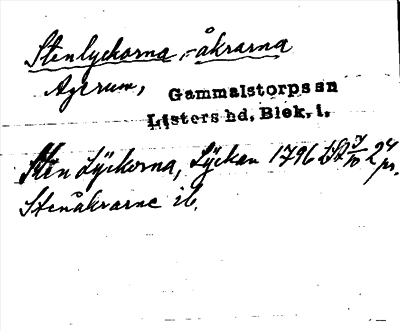 Stenlyckorna, -åkrarna
Agerum,
Gammalstorps sn
Listers hd, Blek. l.
Sten Lÿckorna, Lÿckan 1796
Stenåkrarne ib.